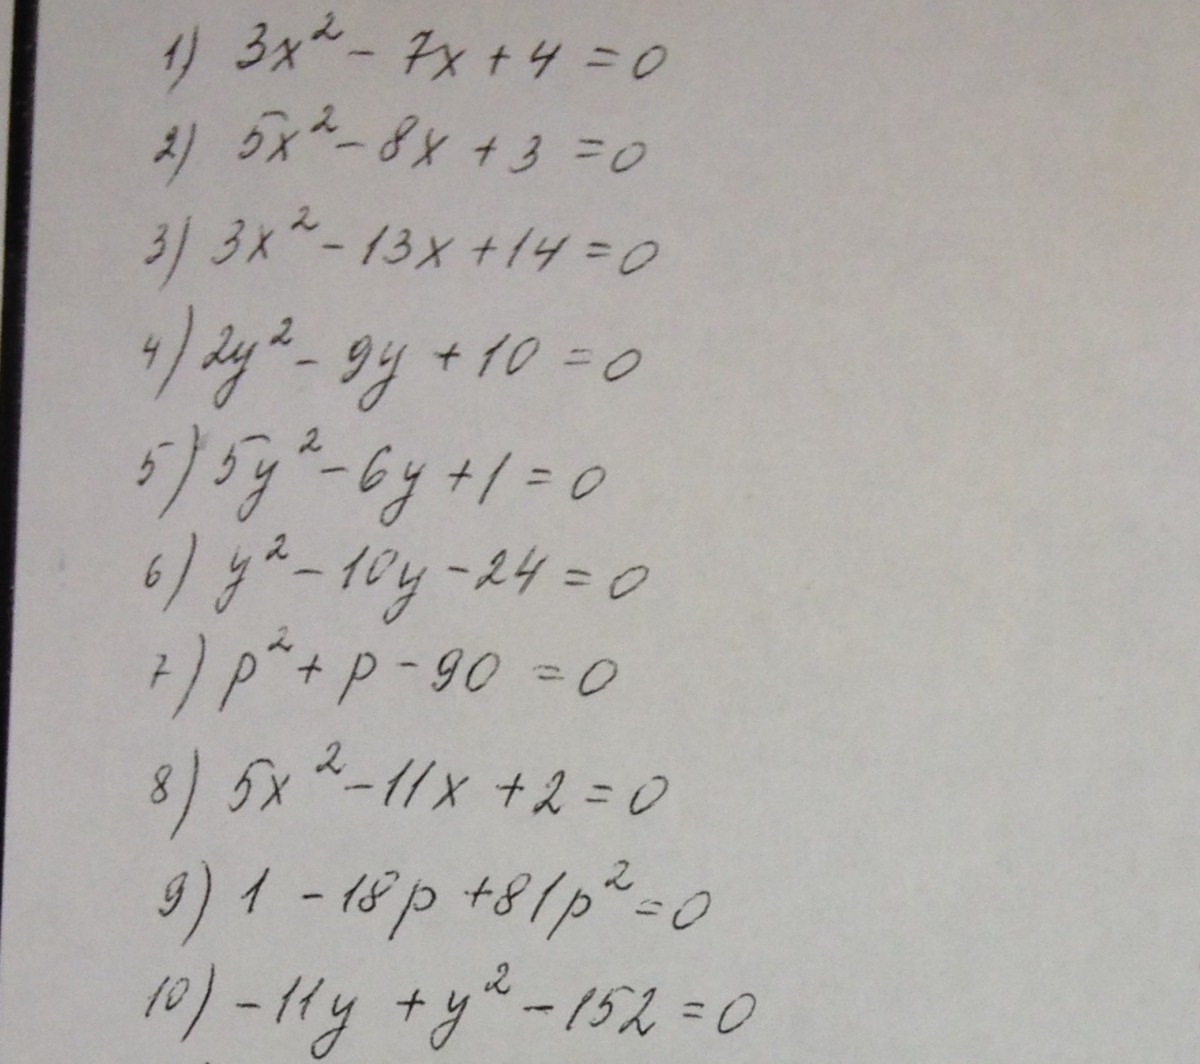 1) 3x² - 7x + 4 = 0
2) 5x² - 8x + 3 = 0
3) 3x² - 13x + 14 = 0
4) 2y² - 9y + 10 = 0
5) 5y² - 6y + 1 = 0
6) y² - 10y - 24 = 0
7) p² + p - 90 = 0
8) 5x² - 11x + 2 = 0
9) 1 - 18p + 81p² = 0
10) - 11y + y² - 152 = 0